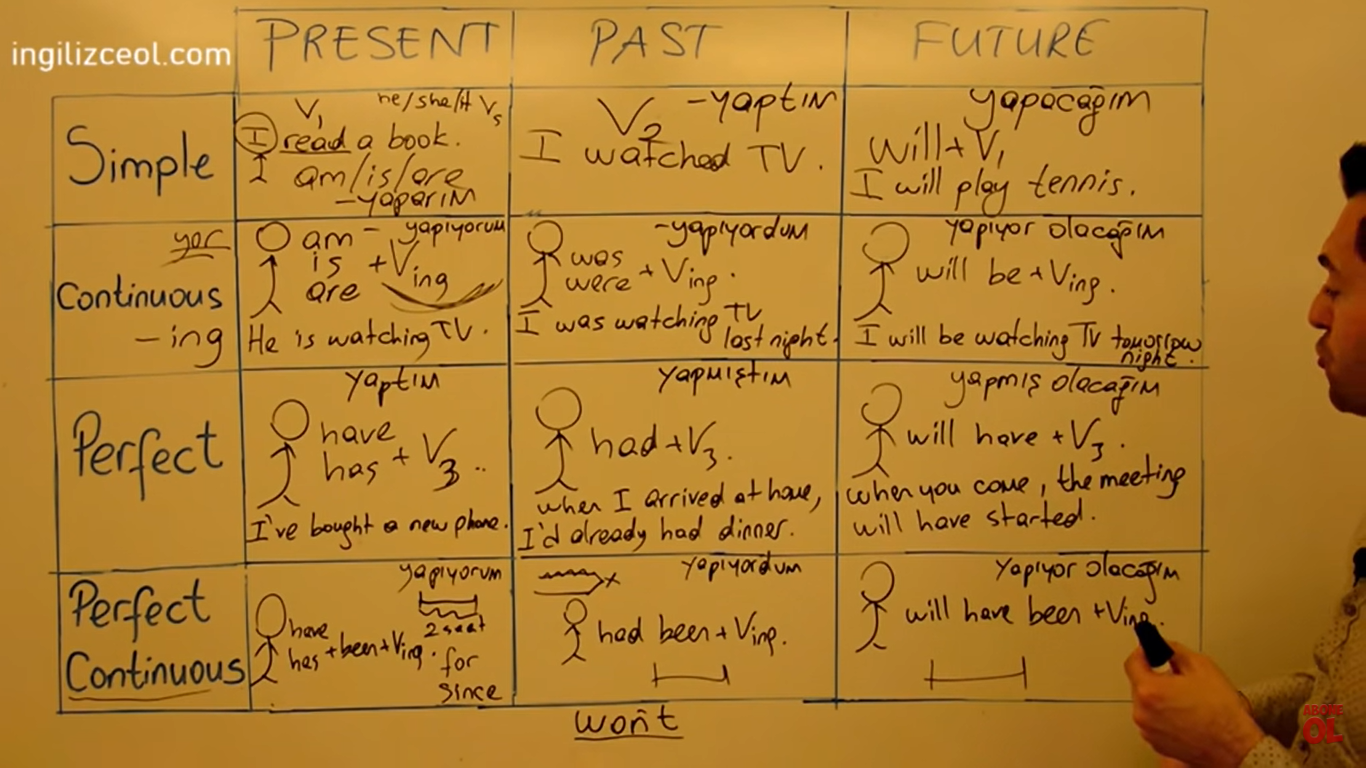 ingilizceol.com
PRESENT PAST FUTURE
Simple
V1 he/she/it Vs
I read a book.
am/is/are
-yaparım
V2 -yaptım
I watched TV.
yapacağım
Will + V1
I will play tennis.
yor
Continuous
-ing
am - yapıyorum
is + Ving
are
He is watching TV.
-yapıyordum
was
were + Ving.
I was watching TV
last night.
yapıyor olacağım
will be + Ving.
I will be watching TV tomorrow
night.
Perfect
yaptım
have
has + V3 ..
I've bought a new phone.
yapmıştım
had + V3.
when I arrived at home,
I'd already had dinner.
yapmış olacağım
will have + V3.
when you come, the meeting
will have started.
Perfect
Continuous
yapıyorum
2 saat
have
has + been + Ving.
for
since
yapıyordum
had been + Ving.
Yapıyor olacağım
will have been + Ving.
won't
ABONE
OL